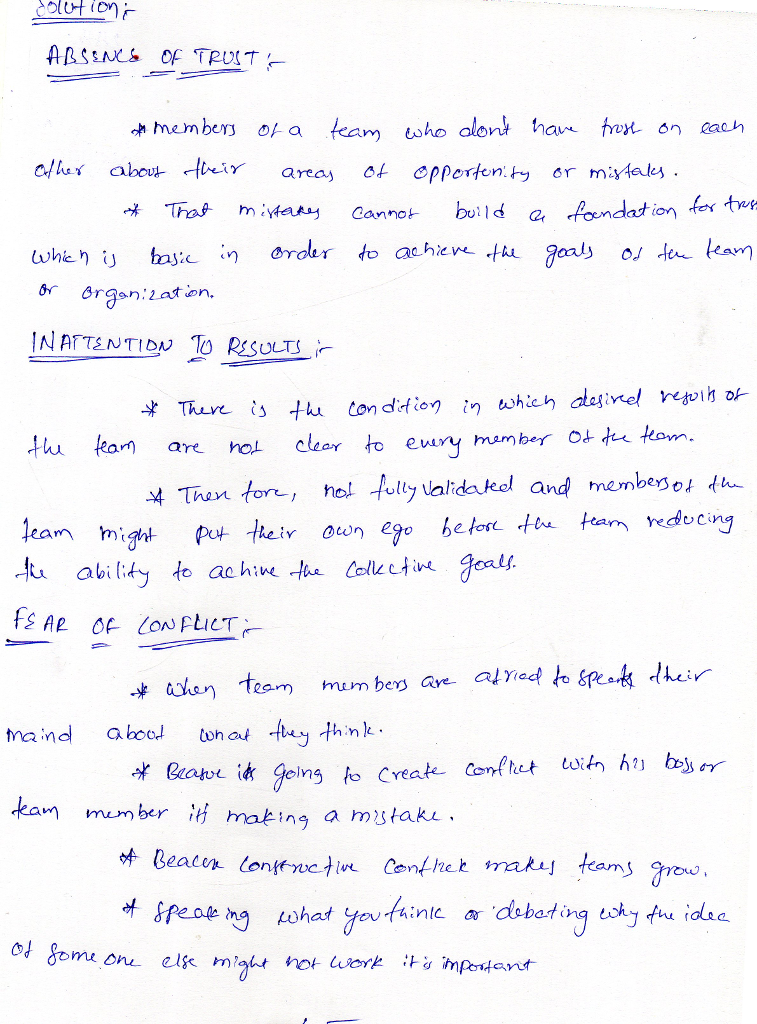 Solution:-
ABSENCE OF TRUST :-
* members of a team who don't have trust on each
other about their areas of opportenity or mistakes.
* That mistakes cannot build a foundation for trus
which is basic in order to achieve the goals of the team
or organization.
INATTENTION TO RESULTS :-
* There is the condition in which desired results of
the team are not clear to every member of the team.
* Then fore, not fully validated and members of the
team might put their own ego before the team reducing
the ability to achive the collective goals.
FEAR OF CONFLICT :-
* when team members are afried to speak their
maind about what they think.
* going to create conflict with his boss or
team member making a mistake.
* constructive conflict makes teams grow.
* speaking what you think or debating why the idea
of some one else might not work it is important